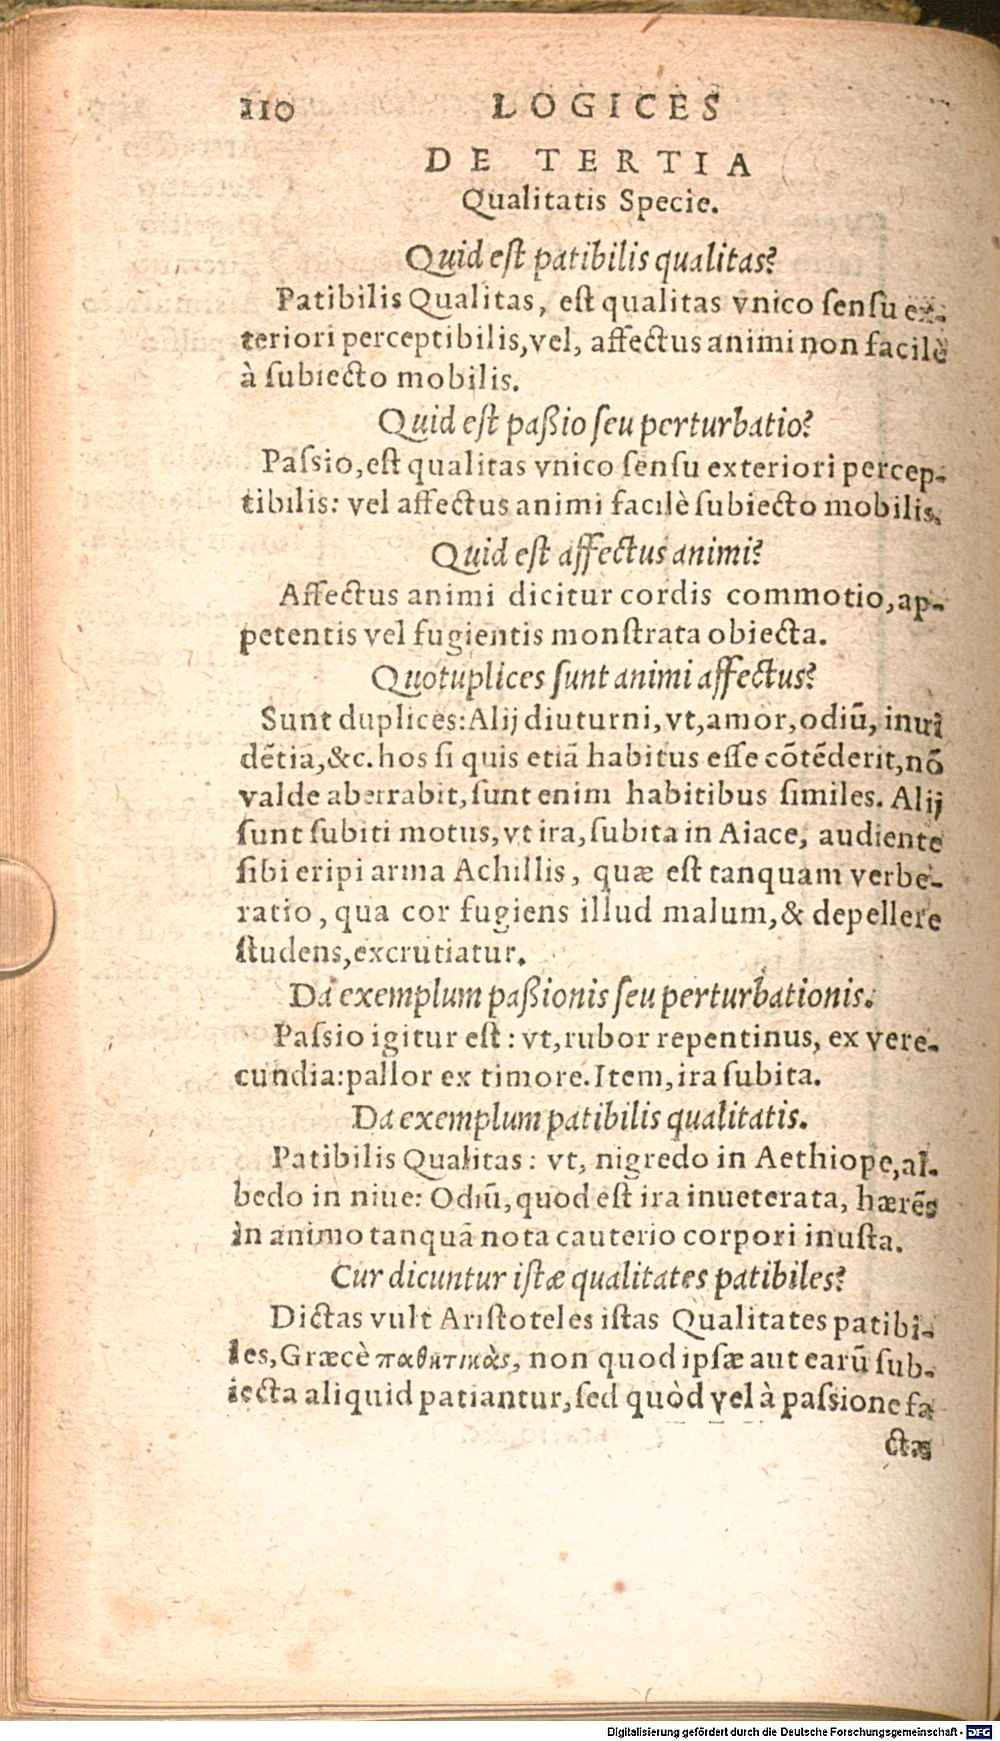 110 LOGICES
DE TERTIA
Qualitatis Specie.
Quid eſt patibilis qualitas?
Patibilis Qualitas, eſt qualitas vnico ſenſu ex-
teriori perceptibilis, vel, affectus animi non facilè
à ſubiecto mobilis.
Quid eſt paßio ſeu perturbatio?
Paſsio, eſt qualitas vnico ſenſu exteriori percep-
tibilis: vel affectus animi facilè ſubiecto mobilis.
Quid eſt affectus animi?
Affectus animi dicitur cordis commotio, ap-
petentis vel fugientis monſtrata obiecta.
Quotuplices ſunt animi affectus?
Sunt duplices: Alij diuturni, vt, amor, odiū, inui
dētia, &c. hos ſi quis etiā habitus eſſe cōtēderit, nō
valde aberrabit, ſunt enim habitibus ſimiles. Alij
ſunt ſubiti motus, vt ira, ſubita in Aiace, audiente
ſibi eripi arma Achillis, quæ eſt tanquam verbe-
ratio, qua cor fugiens illud malum, & depellere
ſtudens, excrutiatur.
Da exemplum paßionis ſeu perturbationis.
Paſsio igitur eſt: vt, rubor repentinus, ex vere-
cundia: pallor ex timore. Item, ira ſubita.
Da exemplum patibilis qualitatis.
Patibilis Qualitas: vt, nigredo in Aethiope, al-
bedo in niue: Odiū, quod eſt ira inueterata, hærēs
in animo tanquā nota cauterio corpori inuſta.
Cur dicuntur iſtæ qualitates patibiles?
Dictas vult Ariſtoteles iſtas Qualitates patibi-
les, Græcè παθητικὰς, non quod ipſæ aut earū ſub-
iecta aliquid patiantur, ſed quòd vel à paſsione fa
ctæ
Digitalisierung gefördert durch die Deutsche Forschungsgemeinschaft - DFG